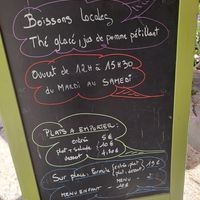 Boissons locales
Thé glacé, jus de pomme pétillant
Ouvert de 12H à 15H30
du MARDI au SAMEDI
PLATS A EMPORTER :
entrée 5€
plat + salade : 10€
dessert : 4.50€
Sur place : Formule
entrée, plat
plat, dessert
19€
MENU
MENU ENFANT
10€